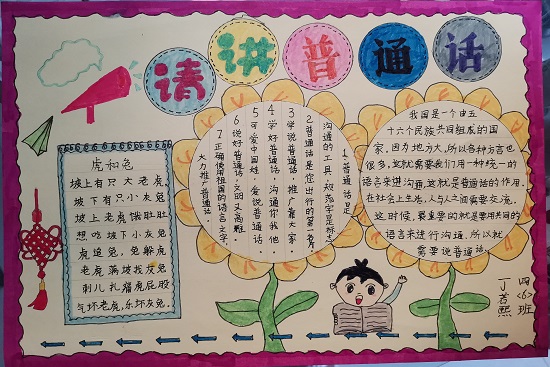 请讲普通话
虎和兔
坡上有只大老虎,
坡下有只小灰兔
坡上老虎饿肚肚
想吃坡下小灰兔
虎追兔,兔躲虎
老虎满坡找灰兔
刺儿扎痛虎屁股
气坏老虎,乐坏灰兔.
1、普通话是
沟通的工具,规范字是标志
2、普通话是您出行的第一
3、学说普通话,推广靠大家
4、学好普通话,沟通你我他.
5、可爱中国娃,爱说普通话.
6、说好普通话,文明又高雅.
7、正确使用祖国的语言文字,
大力推广普通话.
我国是一个由五
十六个民族共同组成的国
家,因为地方大,所以各种方言也
很多,这就需要我们用一种统一的
语言来进行沟通,这就是普通话的作用.
在社会上生活,人与人之间需要交流,
这时候,最重要的就是要用共同的
语言来进行沟通,所以就
需要说普通话.
四<6>班
丁若熙